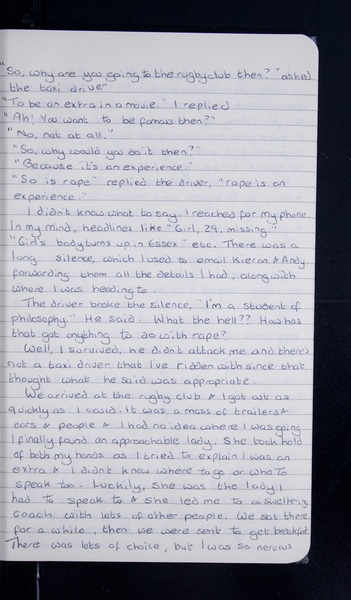 "So, why are you going to the rugby club then?" asked
the taxi driver
"To be an extra in a movie." I replied
"Ah! You want to be famous then?"
"No, not at all."
"So, why would you do it then?"
"Because it's an experience."
"So is rape" replied the driver, "rape is an
experience."
I didn't know what to say. I reached for my phone.
In my mind, headlines like "Girl, 29, missing."
"Girl's body turns up in Essex" etc. There was a
long silence, which I used to email Kieron & Andy,
forwarding them all the details I had, along with
where I was heading to.
The driver broke the silence, "I'm a student of
philosophy." He said. What the hell?? How has
that got anything to do with rape?
Well, I survived, he didn't attack me and there's
not a taxi driver that I've ridden with since that
thought what he said was appropriate.
We arrived at the rugby club & I got out as
quickly as I could. It was a mass of trailers &
cars & people & I had no idea where I was going
I finally found an approachable lady. She took hold
of both my hands as I tried to explain I was an
extra & I didn't know where to go or who to
speak too. Luckily, she was the lady I
had to speak to & she led me to a sweltering
coach with lots of other people. We sat there
for a while, then we were sent to get breakfast.
There was lots of choice, but I was so nervous